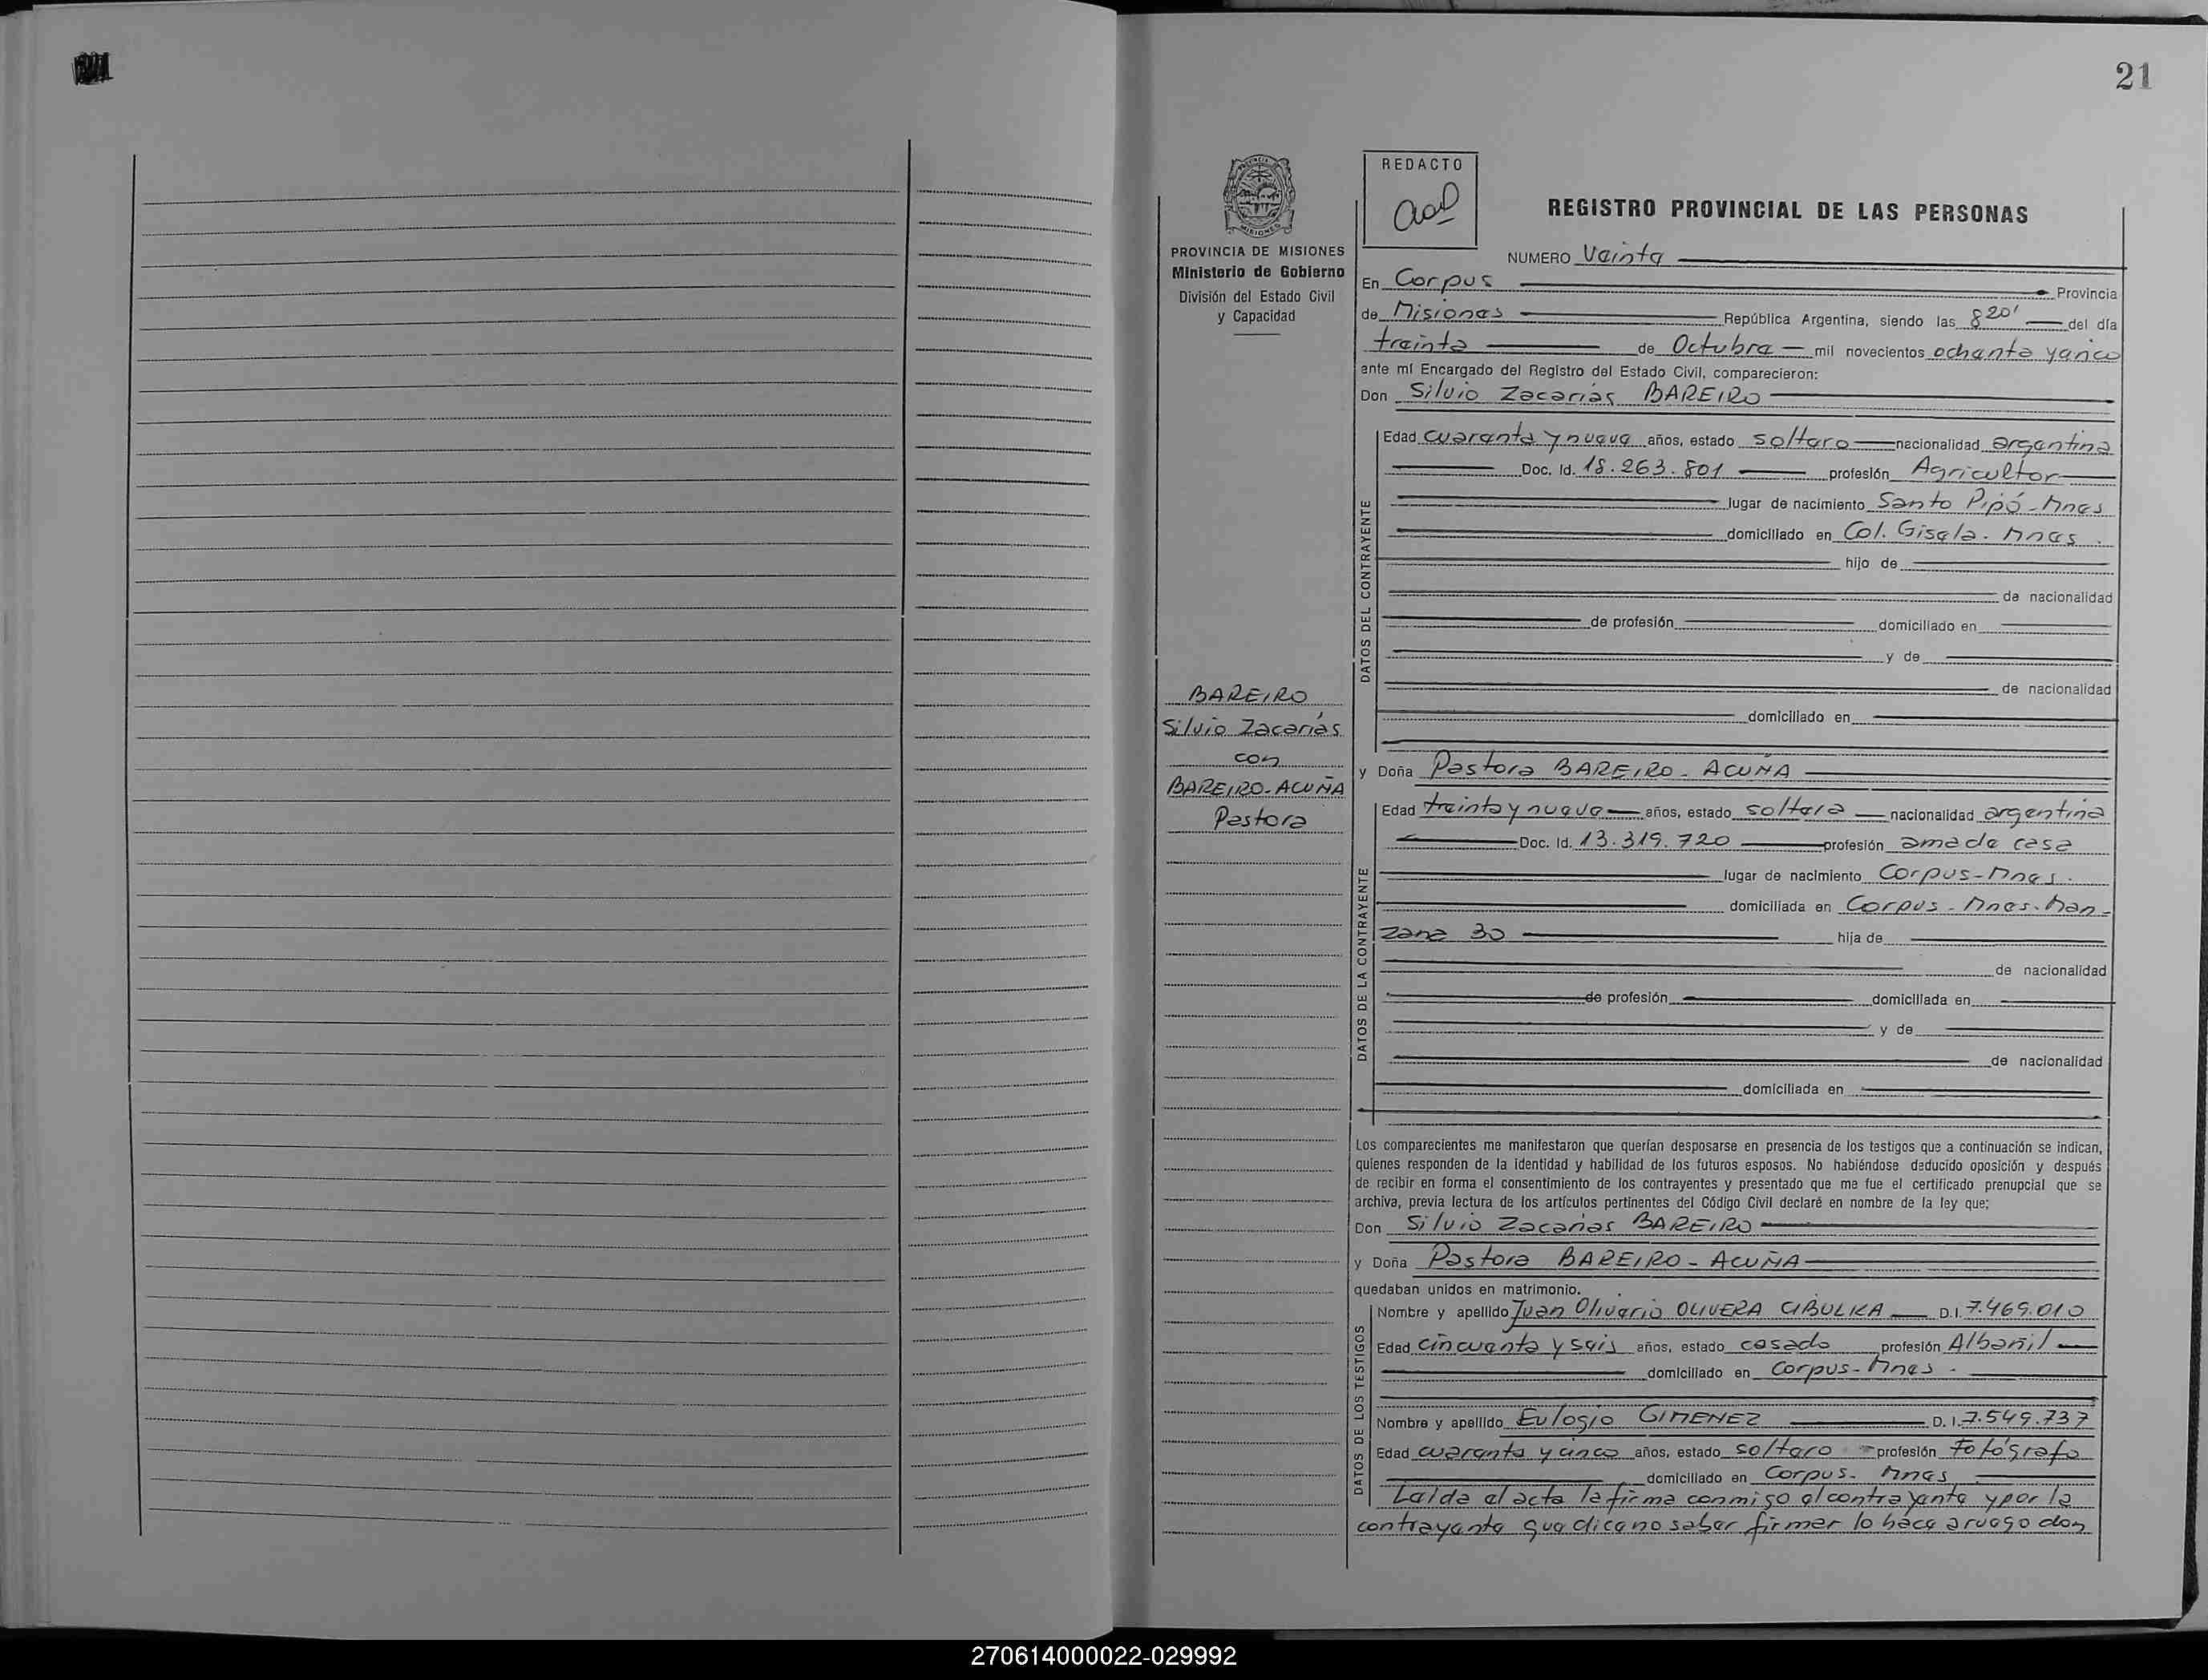 21
REDACTO
REGISTRO PROVINCIAL DE LAS PERSONAS
PROVINCIA DE MISIONES
Ministerio de Gobierno
División del Estado Civil
y Capacidad
NUMERO Veinte
En Corpus Provincia
de Misiones República Argentina, siendo las 8 20' del día
treinta de Octubre mil novecientos ochenta y cinco
ante mí Encargado del Registro del Estado Civil, comparecieron:
Don Silvio Zacarías BAREIRO
DATOS DEL CONTRAYENTE
Edad cuarenta y nueve años, estado soltero nacionalidad argentina
Doc. Id. 18.263.801 profesión Agricultor
lugar de nacimiento Santo Pipó - Mnes
domiciliado en Col. Gisela - Mnes.
hijo de
de nacionalidad
de profesión domiciliado en
y de
de nacionalidad
domiciliado en
BAREIRO
Silvio Zacarías
con
BAREIRO-ACUÑA
Pastora
y Doña Pastora BAREIRO - ACUÑA
DATOS DE LA CONTRAYENTE
Edad treinta y nueve años, estado soltera nacionalidad argentina
Doc. Id. 13.319.720 profesión ama de casa
lugar de nacimiento Corpus - Mnes.
domiciliada en Corpus - Mnes. Man-
zana 30 hija de
de nacionalidad
de profesión domiciliada en
y de
de nacionalidad
domiciliada en
Los comparecientes me manifestaron que querían desposarse en presencia de los testigos que a continuación se indican,
quienes responden de la identidad y habilidad de los futuros esposos. No habiéndose deducido oposición y después
de recibir en forma el consentimiento de los contrayentes y presentado que me fue el certificado prenupcial que se
archiva, previa lectura de los artículos pertinentes del Código Civil declaré en nombre de la ley que:
Don Silvio Zacarías BAREIRO
y Doña Pastora BAREIRO - ACUÑA
quedaban unidos en matrimonio.
DATOS DE LOS TESTIGOS
Nombre y apellido Juan Oliverio OLIVERA CIBULKA D.I. 7.469.010
Edad cincuenta y seis años, estado casado profesión Albañil
domiciliado en Corpus - Mnes.
Nombre y apellido Eulogio GIMENEZ D. I. 7.549.737
Edad cuarenta y cinco años, estado soltero profesión Fotógrafo
domiciliado en Corpus - Mnes
Leída el acta la firma conmigo el contrayente y por la
contrayente que dice no saber firmar lo hace a ruego don
270614000022-029992